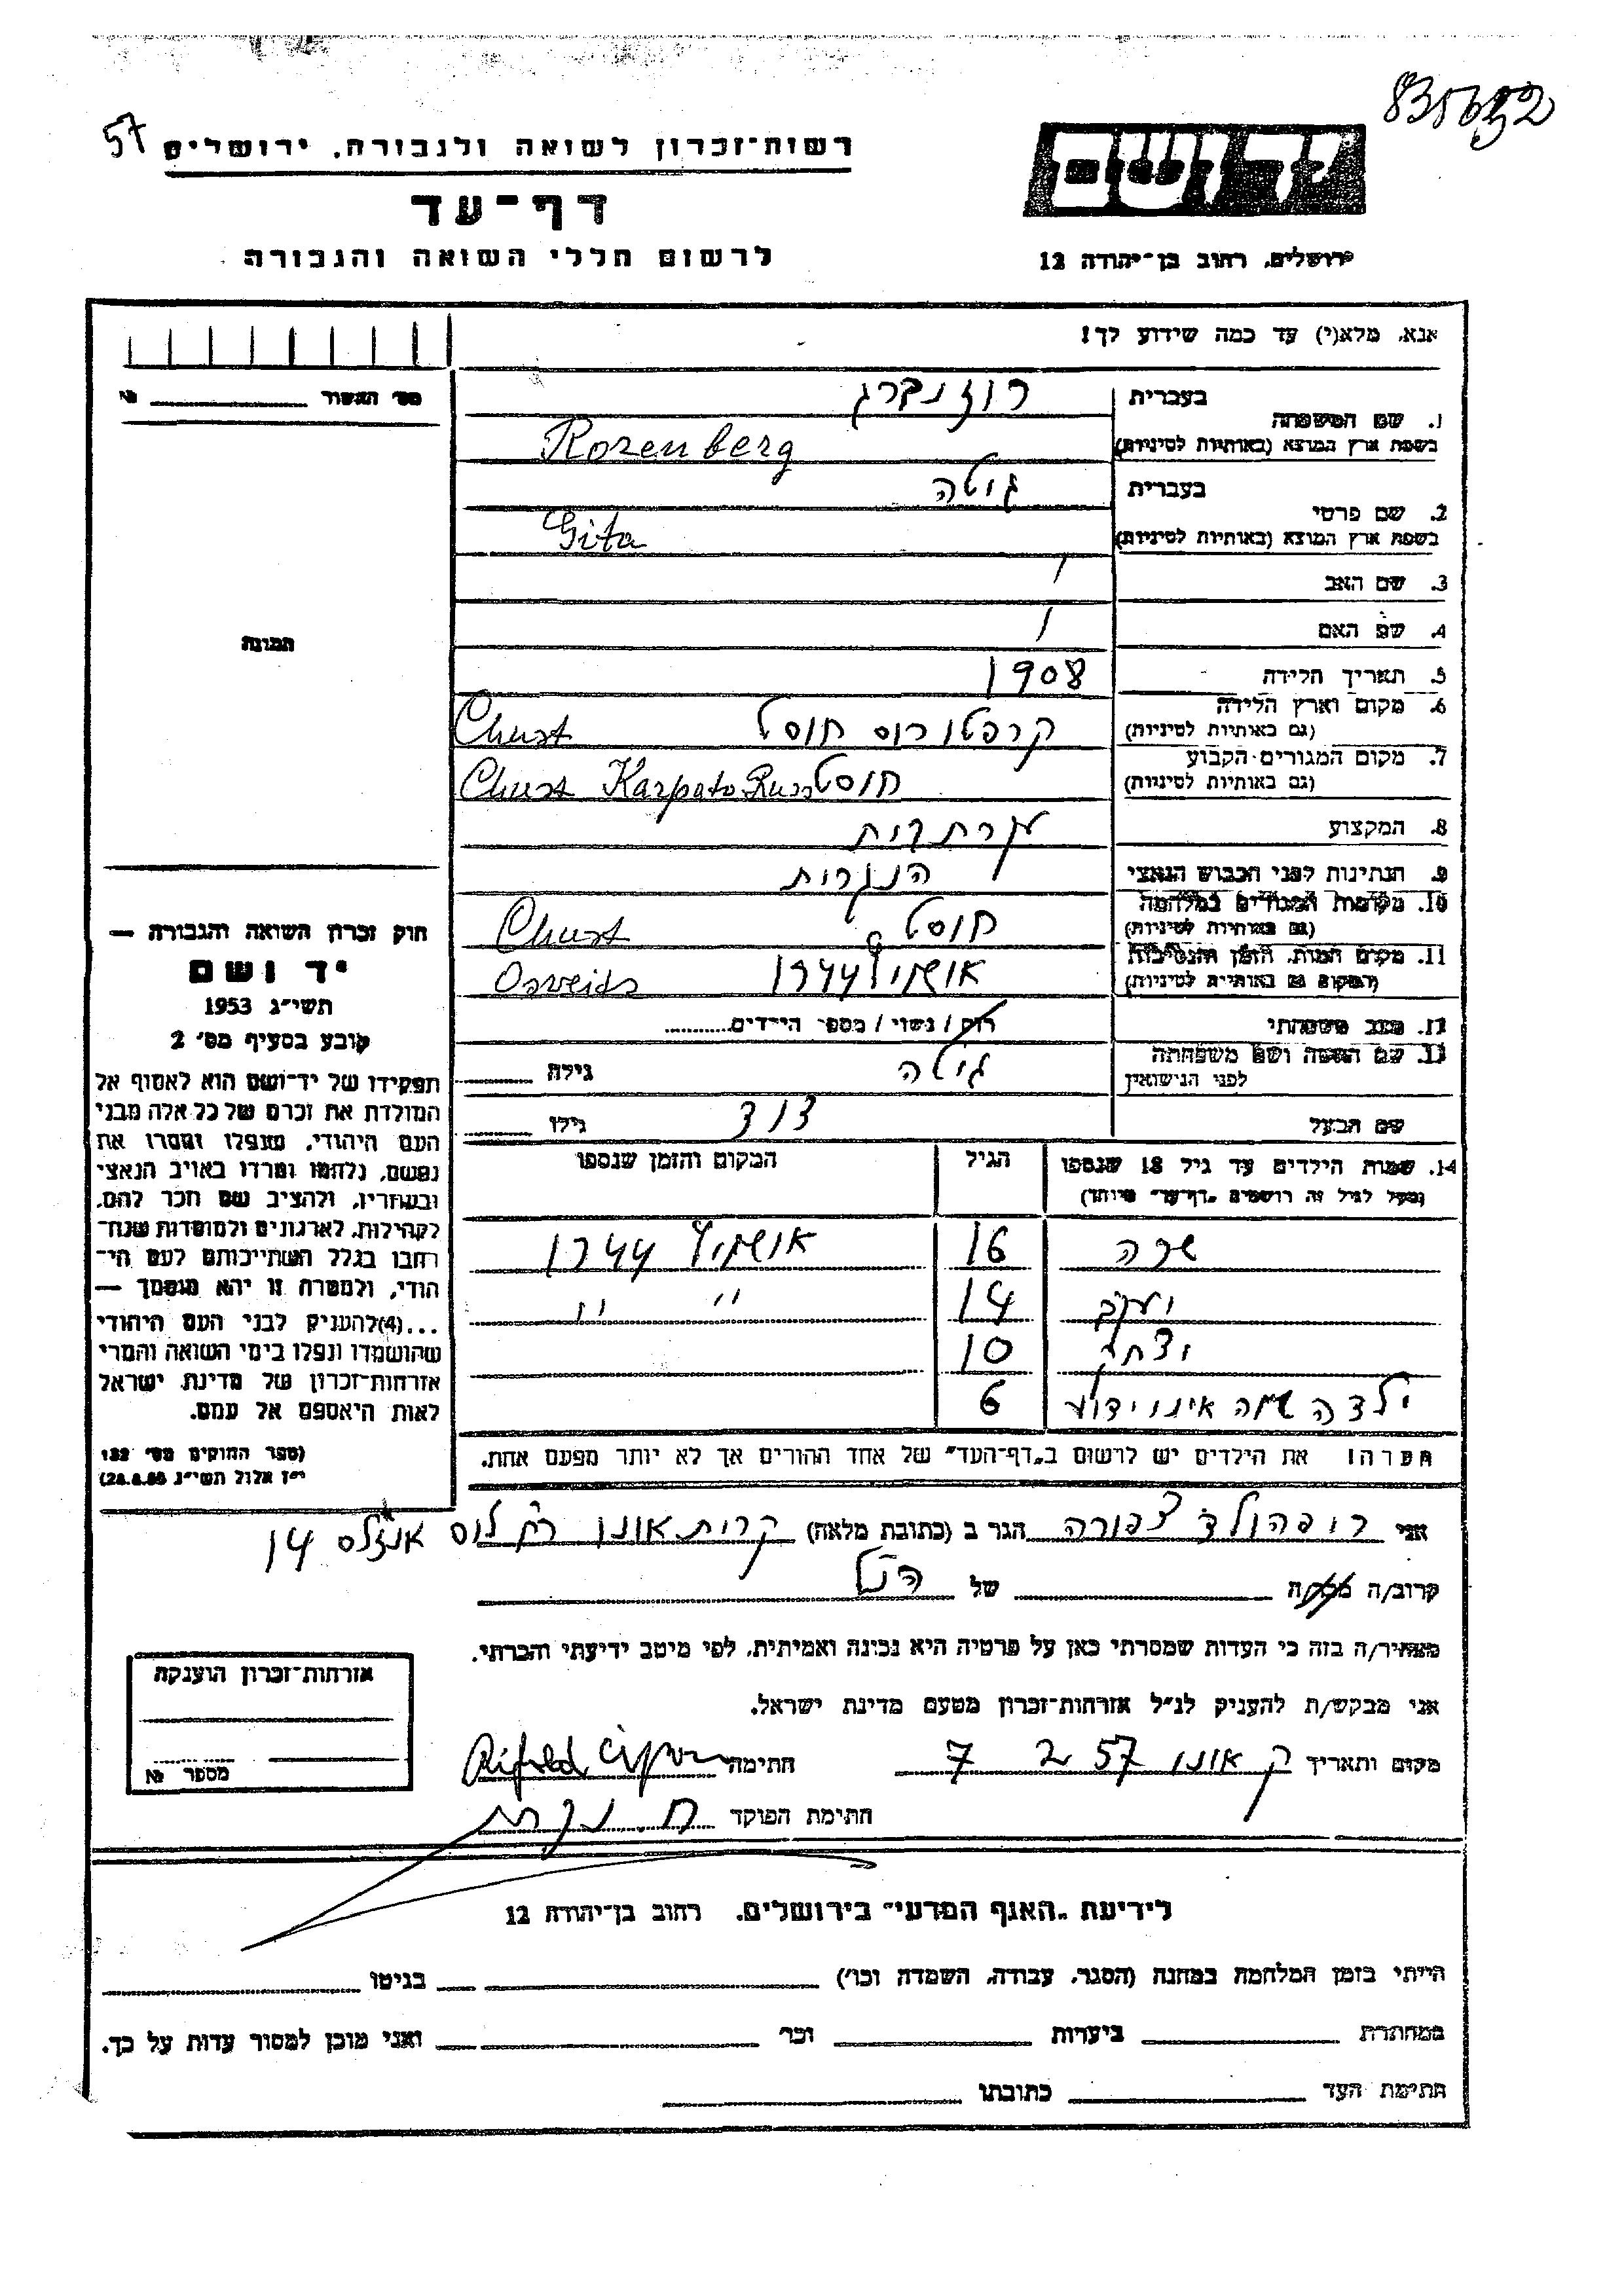 57
רשות־זכרון לשואה ולגבורה, ירושלים
דף־עד
לרשום חללי השואה והגבורה
ידושם
ירושלים, רחוב בן־יהודה 12
אנא, מלא(י) עד כמה שידוע לך!
מס׳ האשור № 
1. שם המשפחה
בעברית רוזנברג
בשפת ארץ המוצא (באותיות לטיניות) Rozenberg
2. שם פרטי
בעברית גיטה
בשפת ארץ המוצא (באותיות לטיניות) Gita
3. שם האב /
4. שם האם /
5. תאריך הלידה 1908
6. מקום וארץ הלידה
(גם באותיות לטיניות) קרפטורוס חוסט Chust
7. מקום המגורים הקבוע
(גם באותיות לטיניות) חוסט Chust Karpato Russ
8. המקצוע עקרת בית
9. הנתינות לפני הכבוש הנאצי הונגרית
10. מקומות המגורים במלחמה
(גם באותיות לטיניות) חוסט Chust
11. מקום המות, הזמן והנסיבות
(המקום גם באותיות לטיניות) אושויץ 1944 Osveits
12. מצב משפחתי רוק / נשוי / מספר הילדים
13. שם האשה ושם משפחתה
לפני הנישואין גיטה גילה
שם הבעל דוד גילו
14. שמות הילדים עד גיל 18 שנספו
(מעל לגיל זה רושמים „דף־עד״ מיוחד)
הגיל
המקום והזמן שנספו
שרה 16 אושויץ 1944
יעקב 14 " "
יצחק 10
ילדה שמה אינו ידוע 6
הערה! את הילדים יש לרשום ב„דף־העד״ של אחד ההורים אך לא יותר מפעם אחת.
תמונה
חוק זכרון השואה והגבורה —
יד ושם
תשי״ג 1953
קובע בסעיף מס׳ 2
תפקידו של יד־ושם הוא לאסוף אל
המולדת את זכרם של כל אלה מבני
העם היהודי, שנפלו ומסרו את
נפשם, נלחמו ומרדו באויב הנאצי
ובעוזריו, ולהציב שם וזכר להם,
לקהילות, לארגונים ולמוסדות שנח־
רבו בגלל השתייכותם לעם הי־
הודי, ולמטרה זו יהא מוסמך —
...(4)להעניק לבני העם היהודי
שהושמדו ונפלו בימי השואה והמרי
אזרחות־זכרון של מדינת ישראל
לאות היאספם אל עמם.
(ספר החוקים מס׳ 132
י״ז אלול תשי״ג 28.8.53)
אני ריפהולד צפורה הגר ב (כתובת מלאה) קרית אונו רח׳ לוס אנזלס 14
קרוב/ה מכר/ה של הנ״ל
מצהיר/ה בזה כי העדות שמסרתי כאן על פרטיה היא נכונה ואמיתית, לפי מיטב ידיעתי והכרתי.
אני מבקש/ת להעניק לנ״ל אזרחות־זכרון מטעם מדינת ישראל.
מקום ותאריך ק אונו 57 2 7 חתימה
חתימת הפוקד
אזרחות־זכרון הוענקה
מספר №
לידיעת „האגף המדעי״ בירושלים, רחוב בן־יהודה 12
הייתי בזמן המלחמה במחנה (הסגר, עבודה, השמדה וכו׳) בגיטו
במחתרת ביערות וכו׳ ואני מוכן למסור עדות על כך.
חתימת העד כתובתו